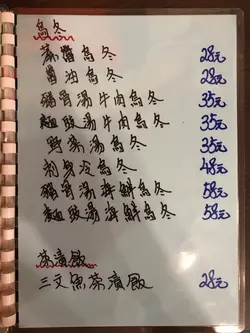 烏冬
蒸醬烏冬 28元
醬油烏冬 28元
豬骨湯牛肉烏冬 35元
麵豉湯牛肉烏冬 35元
野菜湯烏冬 35元
刺身冷烏冬 48元
豬骨湯海鮮烏冬 58元
麵豉湯海鮮烏冬 58元
茶漬飯
三文魚茶漬飯 28元